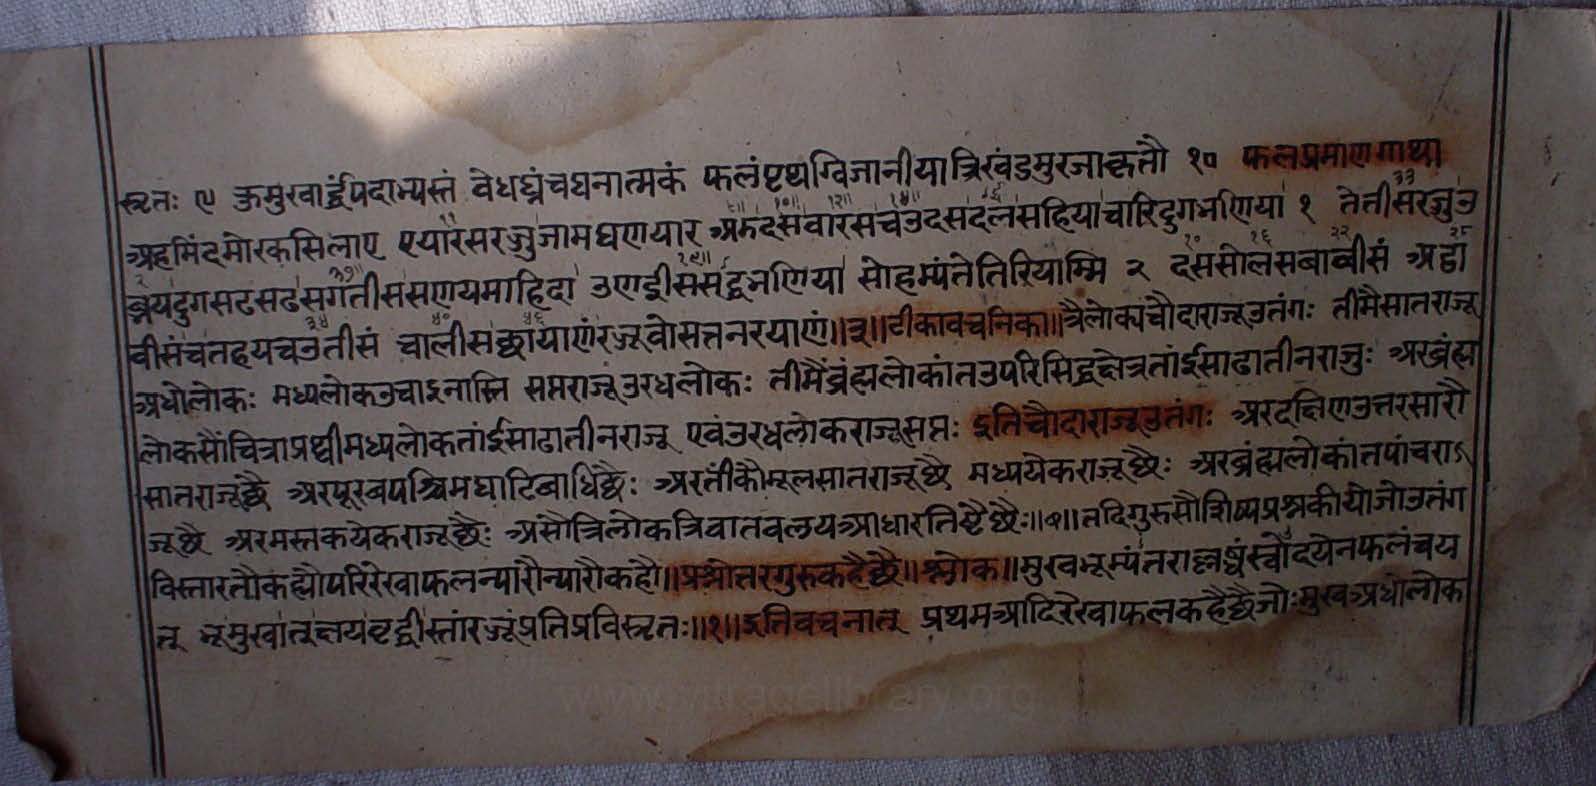 स्मृतः ९ ऊमुखार्द्धपदाभ्यस्तं वेधघ्नंचघनात्मकं फलंपृथग्विजानीयात्रिखंडमुरजाकृतौ १० फलप्रमाणगाथा
अहमिंदमोरकसिलाए एयारसरज्जुजामघणयार अठदसवारसचउदसदलसहियाचारिदुगभणिया १ तेतीसरजुउ
सगतीससएयमाहिदा सोहम्मंतेतिरियाम्मि २ दससोलसबावीसं अट्ठा
वीसंचतहयचउतीसं चालीसछायाणंरजूवोसत्तनरयाणं॥३॥टीकावचनिका॥त्रैलोक्यंचौदाराजूउतंगः तीमैसातराजू
अधोलोकः मध्यलोकउचाइनास्ति सप्तराजूउरधलोकः तीमैंब्रंह्मलोकांतउपरिसिद्धक्षेत्रतांईसाढातीनराजुः अरब्रंह्म
लोकसौंचित्राप्रथ्वीमध्यलोकतांईसाढातीनराजू एवंउरधलोकराजूसप्तः इतिचौदाराजूउतंगः अरदक्षिणउत्तरसारौ
सातराजूछै अरपूरबपश्चिमघाटिबाधिछैः अरतीकौमूलसातराजूछै मध्ययेकराजूछैः अरब्रंह्मलोकांतपांचरा
जूछै अरमस्तकयेकराजूछैः असौत्रिलोकत्रिवातवलयआधारतिष्टैछैः॥१॥तदिगुरुसौशिष्यप्रश्नकीयोजोउतंग
विस्तारतौकह्यौपरिरेखाफलन्यारौन्यारौकहौ॥प्रश्नोतरगुरुकहैछै॥श्लोक॥मुखभूम्यंतराप्तघ्नंस्वोदयेनफलंचय
त् भूमुखात्क्षयवृद्धीस्तांरज्जूंप्रतिप्रविस्मृतः॥१॥इतिवचनात् प्रथमआदिरेखाफलकहैछैजोःमुखअधोलोक
www.vitragelibrary.org